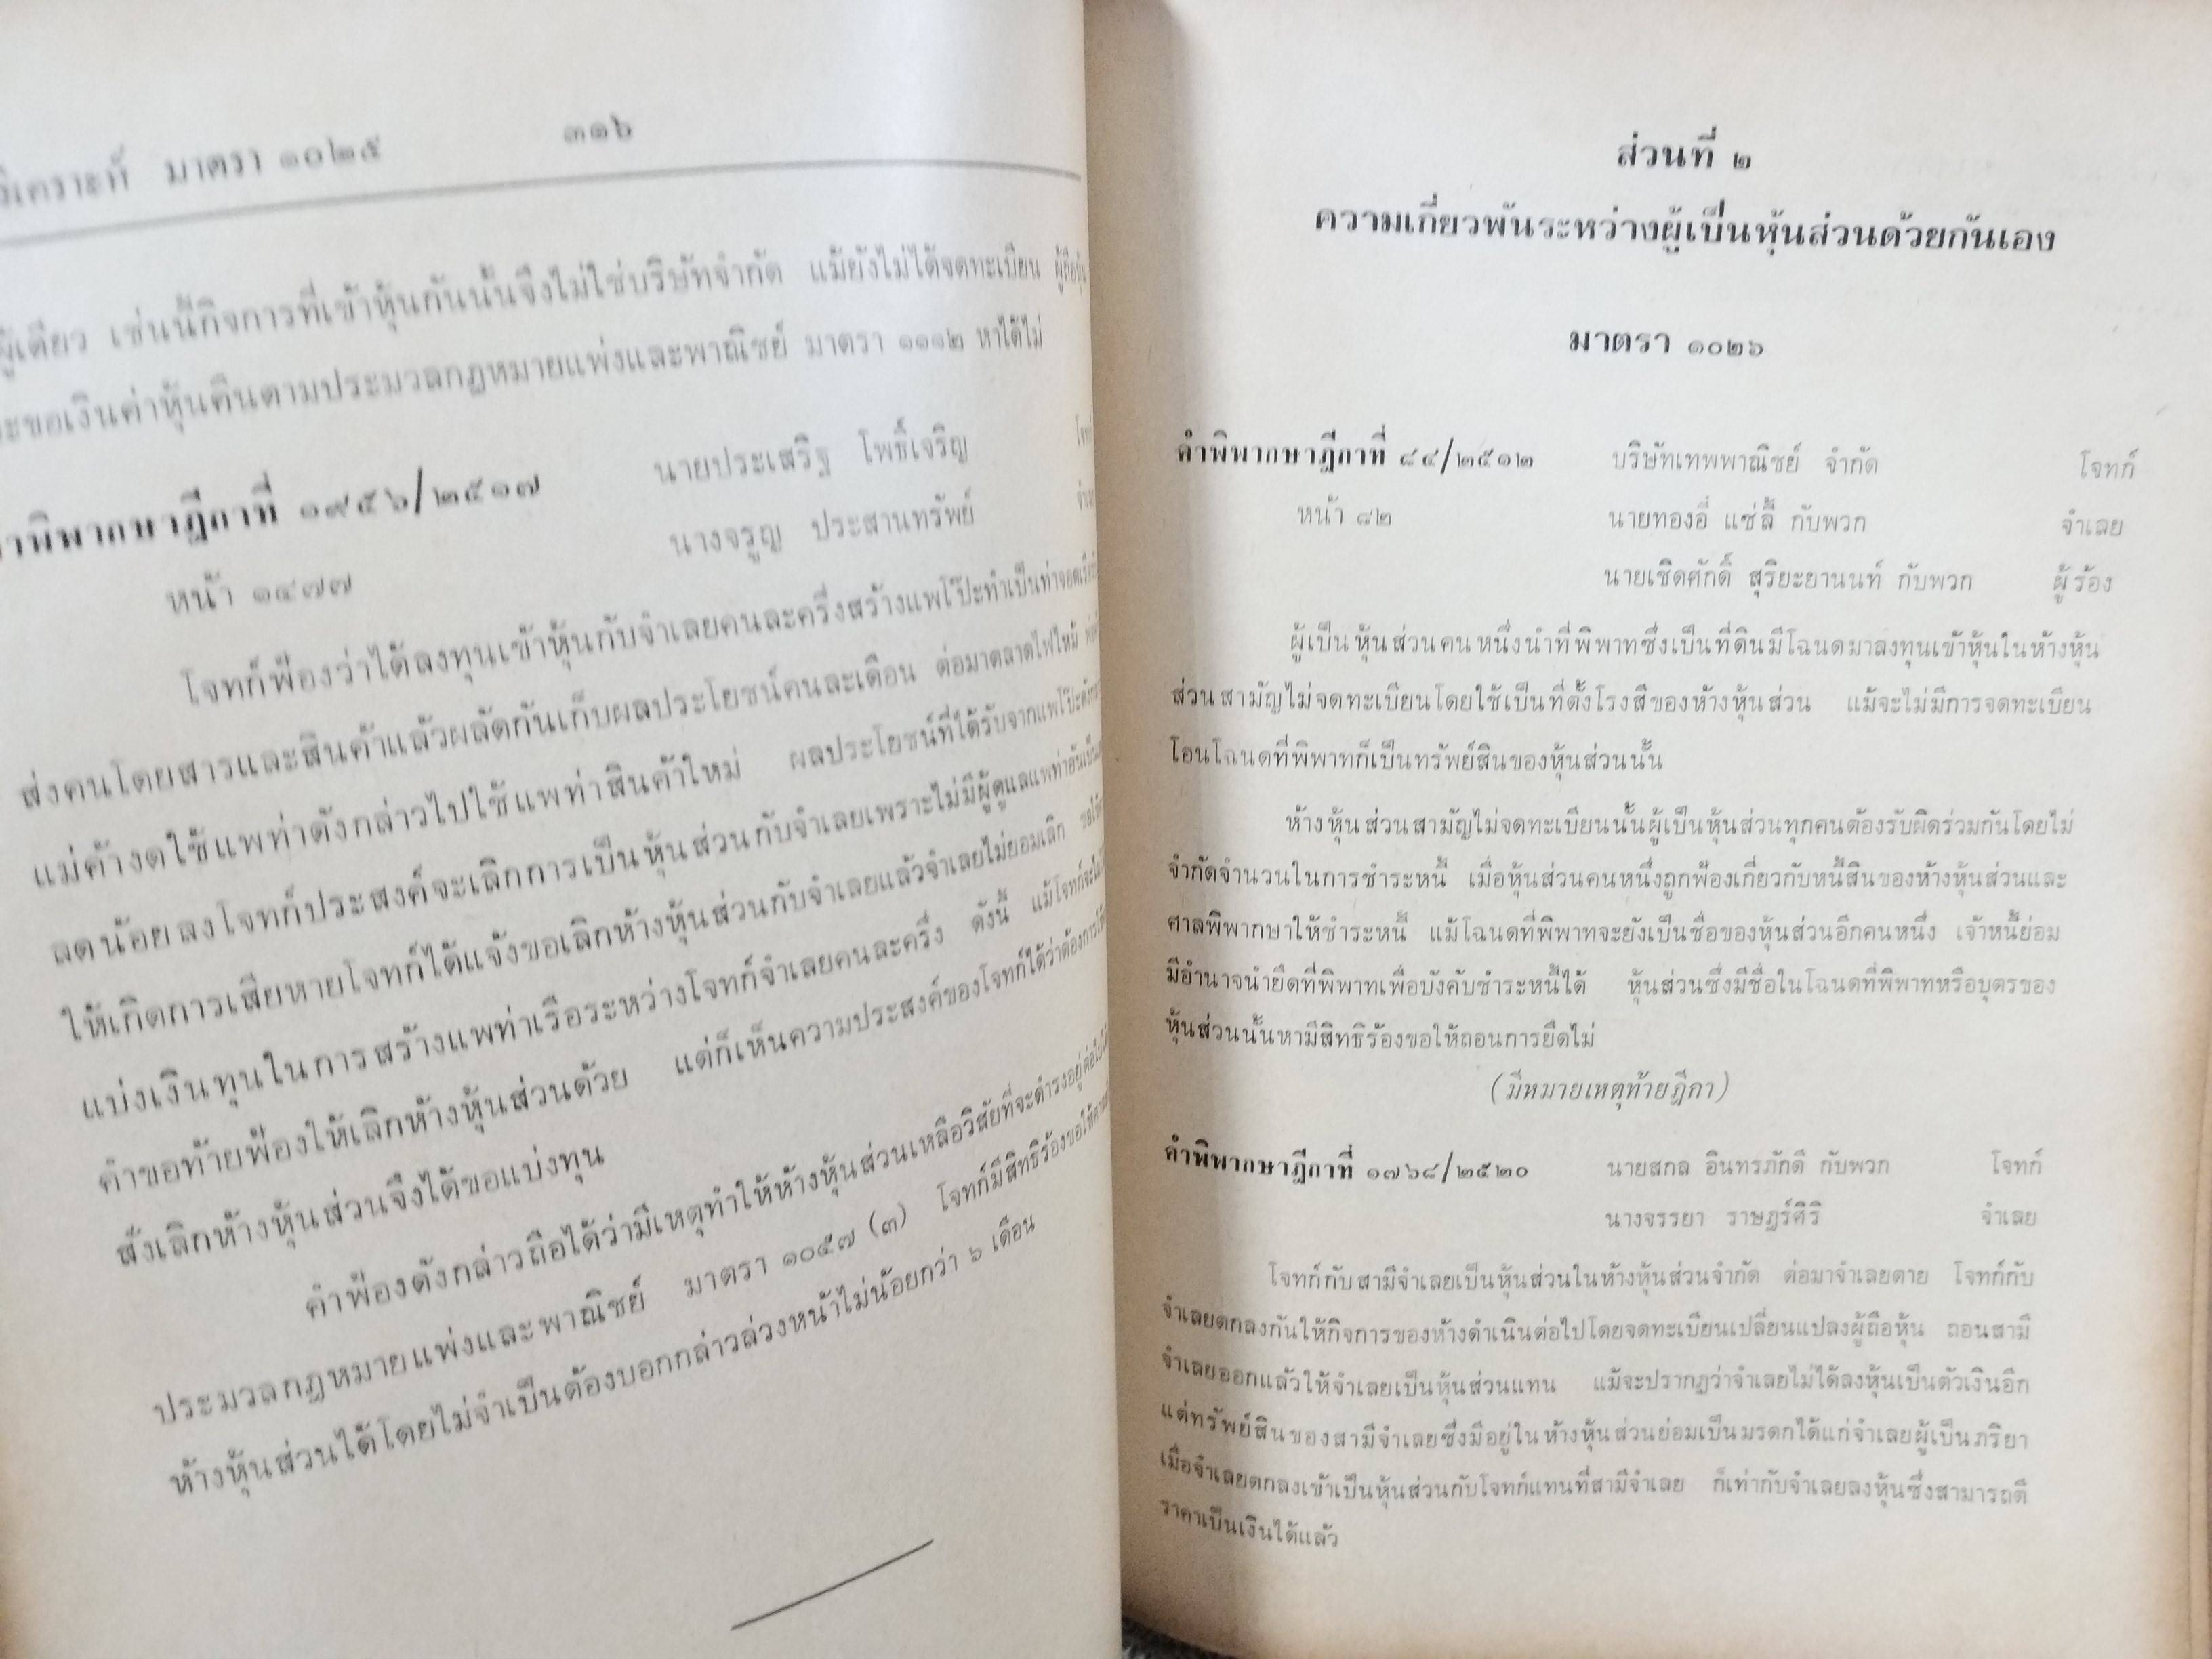 วิเคราะห์ มาตรา ๑๐๒๕ ๓๑๖
ผู้เดียว เช่นนี้กิจการที่เข้าหุ้นกันนั้นจึงไม่ใช่บริษัทจำกัด แม้ยังไม่ได้จดทะเบียน
ขอเงินค่าหุ้นคืนตามประมวลกฎหมายแพ่งและพาณิชย์ มาตรา ๑๑๑๒ หาได้ไม่
คำพิพากษาฎีกาที่ ๑๙๕๖/๒๕๑๗ นายประเสริฐ โพธิ์เจริญ
หน้า ๑๔๗๗ นางจรูญ ประสานทรัพย์
โจทก์ฟ้องว่าได้ลงทุนเข้าหุ้นกับจำเลยคนละครึ่งสร้างแพโป๊ะทำเป็นท่าจอดเรือ
ส่งคนโดยสารและสินค้าแล้วผลัดกันเก็บผลประโยชน์คนละเดือน ต่อมาตลาดไฟไหม้
แม่ค้างดใช้แพท่าดังกล่าวไปใช้แพท่าสินค้าใหม่ ผลประโยชน์ที่ได้รับจากแพโป๊ะ
ลดน้อยลงโจทก์ประสงค์จะเลิกการเป็นหุ้นส่วนกับจำเลยเพราะไม่มีผู้ดูแลแพท่าอันเป็น
ให้เกิดการเสียหายโจทก์ได้แจ้งขอเลิกห้างหุ้นส่วนกับจำเลยแล้วจำเลยไม่ยอมเลิก
แบ่งเงินทุนในการสร้างแพท่าเรือระหว่างโจทก์จำเลยคนละครึ่ง ดังนี้ แม้โจทก์จะ
คำขอท้ายฟ้องให้เลิกห้างหุ้นส่วนด้วย แต่ก็เห็นความประสงค์ของโจทก์ได้ว่าต้องการ
สั่งเลิกห้างหุ้นส่วนจึงได้ขอแบ่งทุน
คำฟ้องดังกล่าวถือได้ว่ามีเหตุทำให้ห้างหุ้นส่วนเหลือวิสัยที่จะดำรงอยู่ต่อไป
ประมวลกฎหมายแพ่งและพาณิชย์ มาตรา ๑๐๕๗ (๓) โจทก์มีสิทธิร้องขอให้
ห้างหุ้นส่วนได้โดยไม่จำเป็นต้องบอกกล่าวล่วงหน้าไม่น้อยกว่า ๖ เดือน
ส่วนที่ ๒
ความเกี่ยวพันระหว่างผู้เป็นหุ้นส่วนด้วยกันเอง
มาตรา ๑๐๒๖
คำพิพากษาฎีกาที่ ๘๔/๒๕๑๒ บริษัทเทพพาณิชย์ จำกัด โจทก์
หน้า ๘๒ นายทองอี่ แซ่ลี้ กับพวก จำเลย
นายเชิดศักดิ์ สุริยะยานนท์ กับพวก ผู้ร้อง
ผู้เป็นหุ้นส่วนคนหนึ่งนำที่พิพาทซึ่งเป็นที่ดินมีโฉนดมาลงทุนเข้าหุ้นในห้างหุ้น
ส่วนสามัญไม่จดทะเบียนโดยใช้เป็นที่ตั้งโรงสีของห้างหุ้นส่วน แม้จะไม่มีการจดทะเบียน
โอนโฉนดที่พิพาทก็เป็นทรัพย์สินของหุ้นส่วนนั้น
ห้างหุ้นส่วนสามัญไม่จดทะเบียนนั้นผู้เป็นหุ้นส่วนทุกคนต้องรับผิดร่วมกันโดยไม่
จำกัดจำนวนในการชำระหนี้ เมื่อหุ้นส่วนคนหนึ่งถูกฟ้องเกี่ยวกับหนี้สินของห้างหุ้นส่วนและ
ศาลพิพากษาให้ชำระหนี้ แม้โฉนดที่พิพาทจะยังเป็นชื่อของหุ้นส่วนอีกคนหนึ่ง เจ้าหนี้ย่อม
มีอำนาจนำยึดที่พิพาทเพื่อบังคับชำระหนี้ได้ หุ้นส่วนซึ่งมีชื่อในโฉนดที่พิพาทหรือบุตรของ
หุ้นส่วนนั้นหามีสิทธิร้องขอให้ถอนการยึดไม่
(มีหมายเหตุท้ายฎีกา)
คำพิพากษาฎีกาที่ ๑๗๖๘/๒๕๒๐ นายสกล อินทรภักดี กับพวก โจทก์
นางจรรยา ราษฎร์ศิริ จำเลย
โจทก์กับสามีจำเลยเป็นหุ้นส่วนในห้างหุ้นส่วนจำกัด ต่อมาจำเลยตาย โจทก์กับ
จำเลยตกลงกันให้กิจการของห้างดำเนินต่อไปโดยจดทะเบียนเปลี่ยนแปลงผู้ถือหุ้น ถอนสามี
จำเลยออกแล้วให้จำเลยเป็นหุ้นส่วนแทน แม้จะปรากฏว่าจำเลยไม่ได้ลงหุ้นเป็นตัวเงินอีก
แต่ทรัพย์สินของสามีจำเลยซึ่งมีอยู่ในห้างหุ้นส่วนย่อมเป็นมรดกได้แก่จำเลยผู้เป็นภริยา
เมื่อจำเลยตกลงเข้าเป็นหุ้นส่วนกับโจทก์แทนที่สามีจำเลย ก็เท่ากับจำเลยลงหุ้นซึ่งสามารถตี
ราคาเป็นเงินได้แล้ว